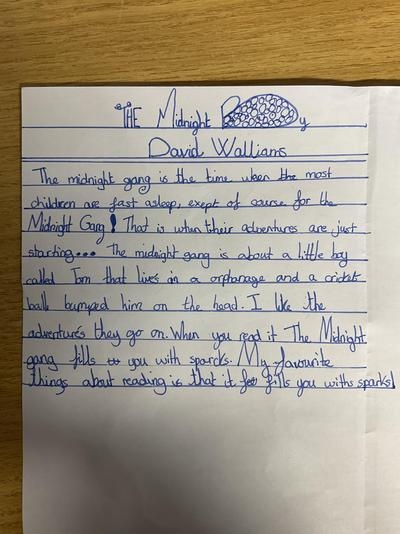 THE Midnight By
David Walliams
The midnight gang is the time when the most
children are fast asleep, exept of course for the
Midnight Gang! That is when their adventures are just
starting... The midnight gang is about a little boy
called Tom that lives in a orphanage and a cricket
ball bumped him on the head. I like the
adventures they go on. When you read it The Midnight
gang fills you with sparcks. My favourite
things about reading is that it fills you withs sparks!